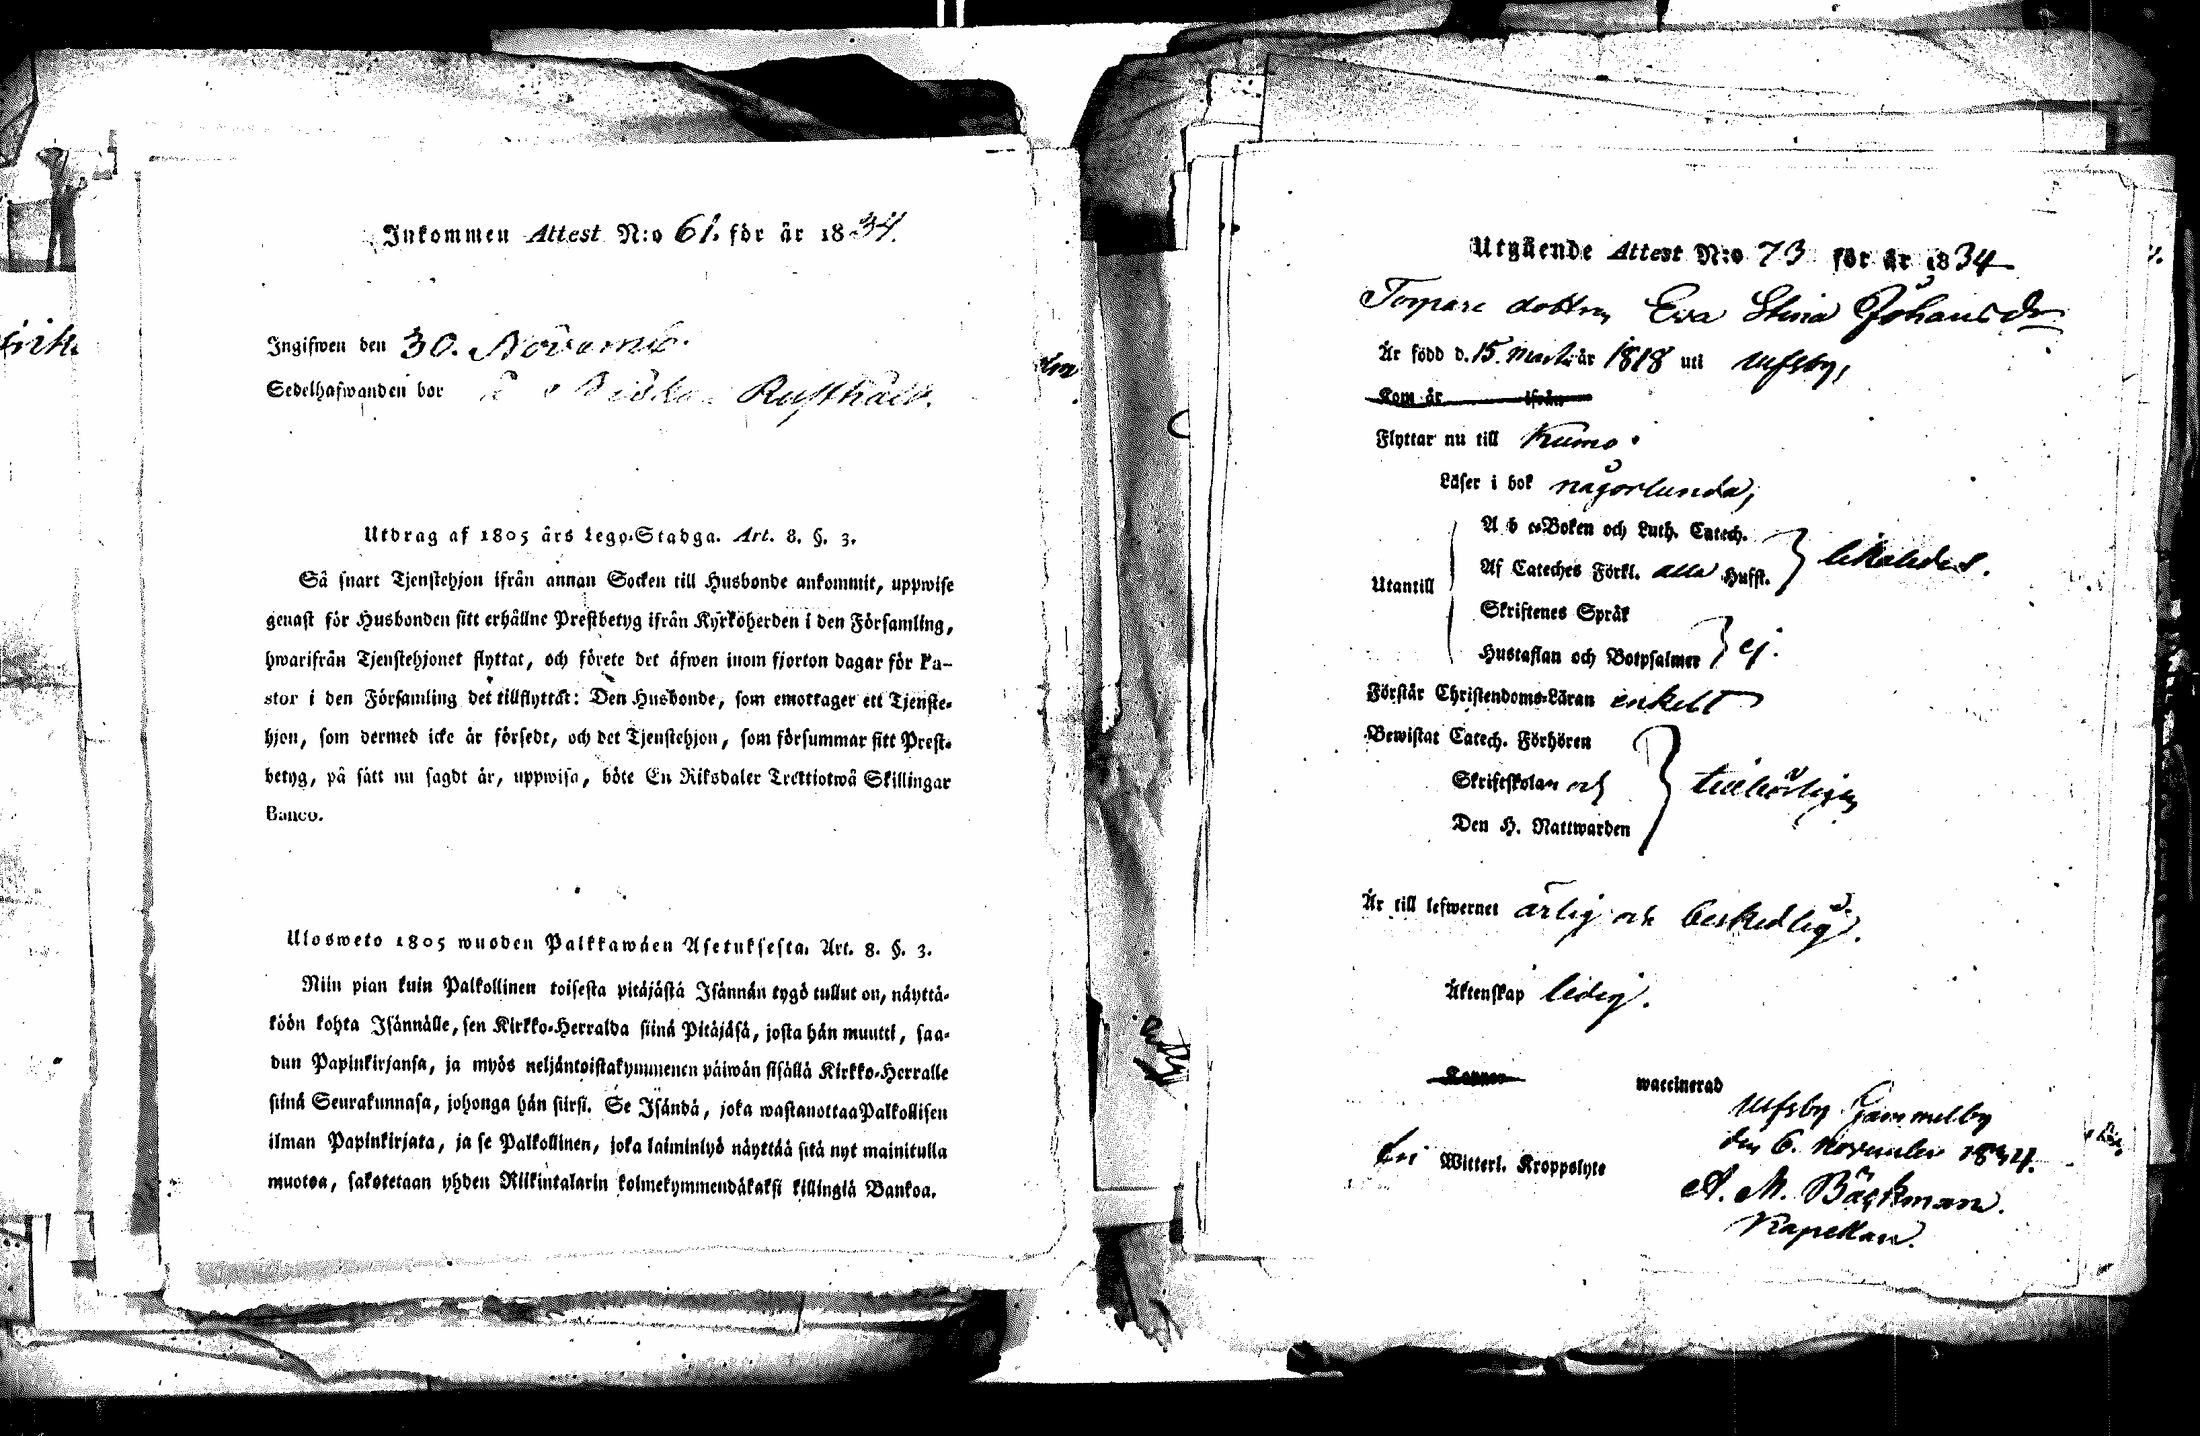 Inkommen Attest N:o 61. för år 1834.
Ingifwen den 30. Novemb.
Sedelhafwanden bor Rusthåll.
Utdrag af 1805 års Lego-Stadga. Art. 8. §. 3.
Så snart Tjenstehjon ifrån annan Socken till Husbonde ankommit, uppwise
genast för Husbonden sitt erhållne Prestbetyg ifrån Kyrkoherden i den Församling,
hwarifrån Tjenstehjonet flyttat, och förete det äfwen inom fjorton dagar för Pa-
stor i den Församling det tillflyttat: Den Husbonde, som emottager ett Tjenste-
hjon, som dermed icke är försedt, och det Tjenstehjon, som försummar sitt Prest-
betyg, på sätt nu sagdt är, uppwisa, böte En Riksdaler Trettiotwå Skillingar
Banco.
Ulosweto 1805 wuoden Palkkawäen Asetuksesta. Art. 8. §. 3.
Niin pian kuin Palkollinen toisesta pitäjästä Isännän tygö tullut on, näyttä-
köön kohta Isännälle, sen Kirkko-Herralda siinä Pitäjäsä, josta hän muutti, saa-
dun Papinkirjansa, ja myös neljäntoistakymmenen päiwän sisällä Kirkko-Herralle
siinä Seurakunnasa, johonga hän siirsi. Se Isändä, joka wastanottaa Palkollisen
ilman Papinkirjata, ja se Palkollinen, joka laiminlyö näyttää sitä nyt mainitulla
muotoa, sakotetaan yhden Riikintalarin kolmekymmendäkaksi killingiä Bankoa.
Utgående Attest N:o 73 för år 1834
Torpare dottren Eva Stina Johansdr
Är född d. 15. Mart. år 1818 uti Ulfsby,
Kom år ifrån
Flyttar nu till Kumo.
Läser i bok någorlunda,
A b c-Boken och Luth. Catech.
Af Cateches Förkl. alla Hufst. } likaledes.
Utantill
Skriftenes Språk
Hustaflan och Botpsalmer } ej.
Förstår Christendoms-Läran enkelt
Bewistat Catech. Förhören
Skriftskolan och } tillbörligen
Den H. Nattwarden
Är till lefwernet ärlig och beskedlig.
Äktenskap ledig.
Koppor waccinerad
Ulfsby Gammelby
den 6. November 1834.
fri Witterl. Kroppslyte
A. M. Bäckman.
Kapellan.